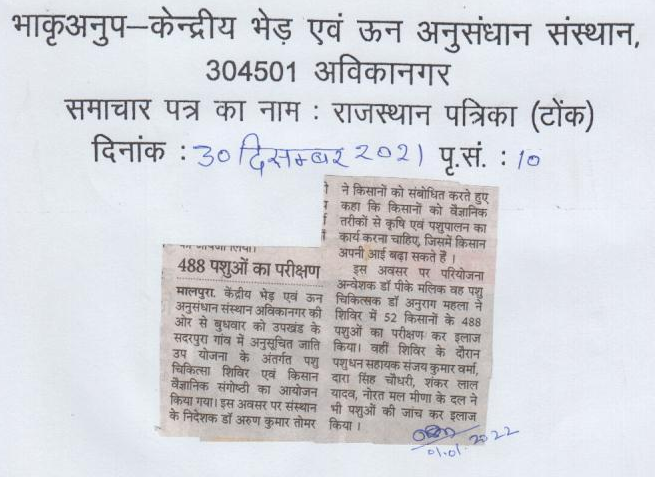 भाकृअनुप–केन्द्रीय भेड़ एवं ऊन अनुसंधान संस्थान,
304501 अविकानगर
समाचार पत्र का नाम : राजस्थान पत्रिका (टोंक)
दिनांक : 30 दिसम्बर 2021 पृ.सं. : 10
488 पशुओं का परीक्षण
मालपुरा. केंद्रीय भेड़ एवं ऊन
अनुसंधान संस्थान अविकानगर की
ओर से बुधवार को उपखंड के
सदरपुरा गांव में अनुसूचित जाति
उप योजना के अंतर्गत पशु
चिकित्सा शिविर एवं किसान
वैज्ञानिक संगोष्ठी का आयोजन
किया गया। इस अवसर पर संस्थान
के निदेशक डॉ अरुण कुमार तोमर
ने किसानों को संबोधित करते हुए
कहा कि किसानों को वैज्ञानिक
तरीकों से कृषि एवं पशुपालन का
कार्य करना चाहिए, जिसमें किसान
अपनी आई बढ़ा सकते हैं ।
इस अवसर पर परियोजना
अन्वेशक डॉ पीके मलिक वह पशु
चिकित्सक डॉ अनुराग महला ने
शिविर में 52 किसानों के 488
पशुओं का परीक्षण कर इलाज
किया। वहीं शिविर के दौरान
पशुधन सहायक संजय कुमार वर्मा,
दारा सिंह चौधरी, शंकर लाल
यादव, नोरत मल मीणा के दल ने
भी पशुओं की जांच कर इलाज
किया ।
01.01.2022